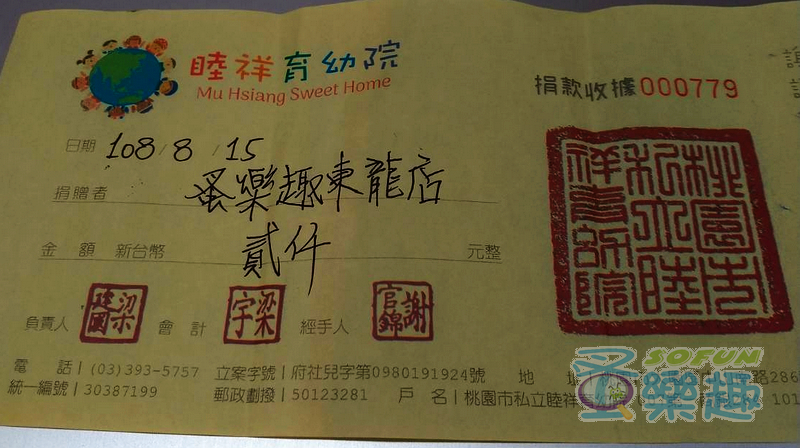 睦祥育幼院
Mu Hsiang Sweet Home
捐款收據000779
日期 108/8/15
捐贈者 蚤樂趣東龍店
金額 新台幣 貳仟 元整
負責人 梁建國 會計 梁宇 經手人 謝官錦
桃園市私立睦祥育幼院
電話|(03)393-5757 立案字號|府社兒字第0980191924號 地 路286
統一編號|30387199 郵政劃撥|50123281 戶名|桃園市私立睦祥育 101
SOFUN
蚤樂趣